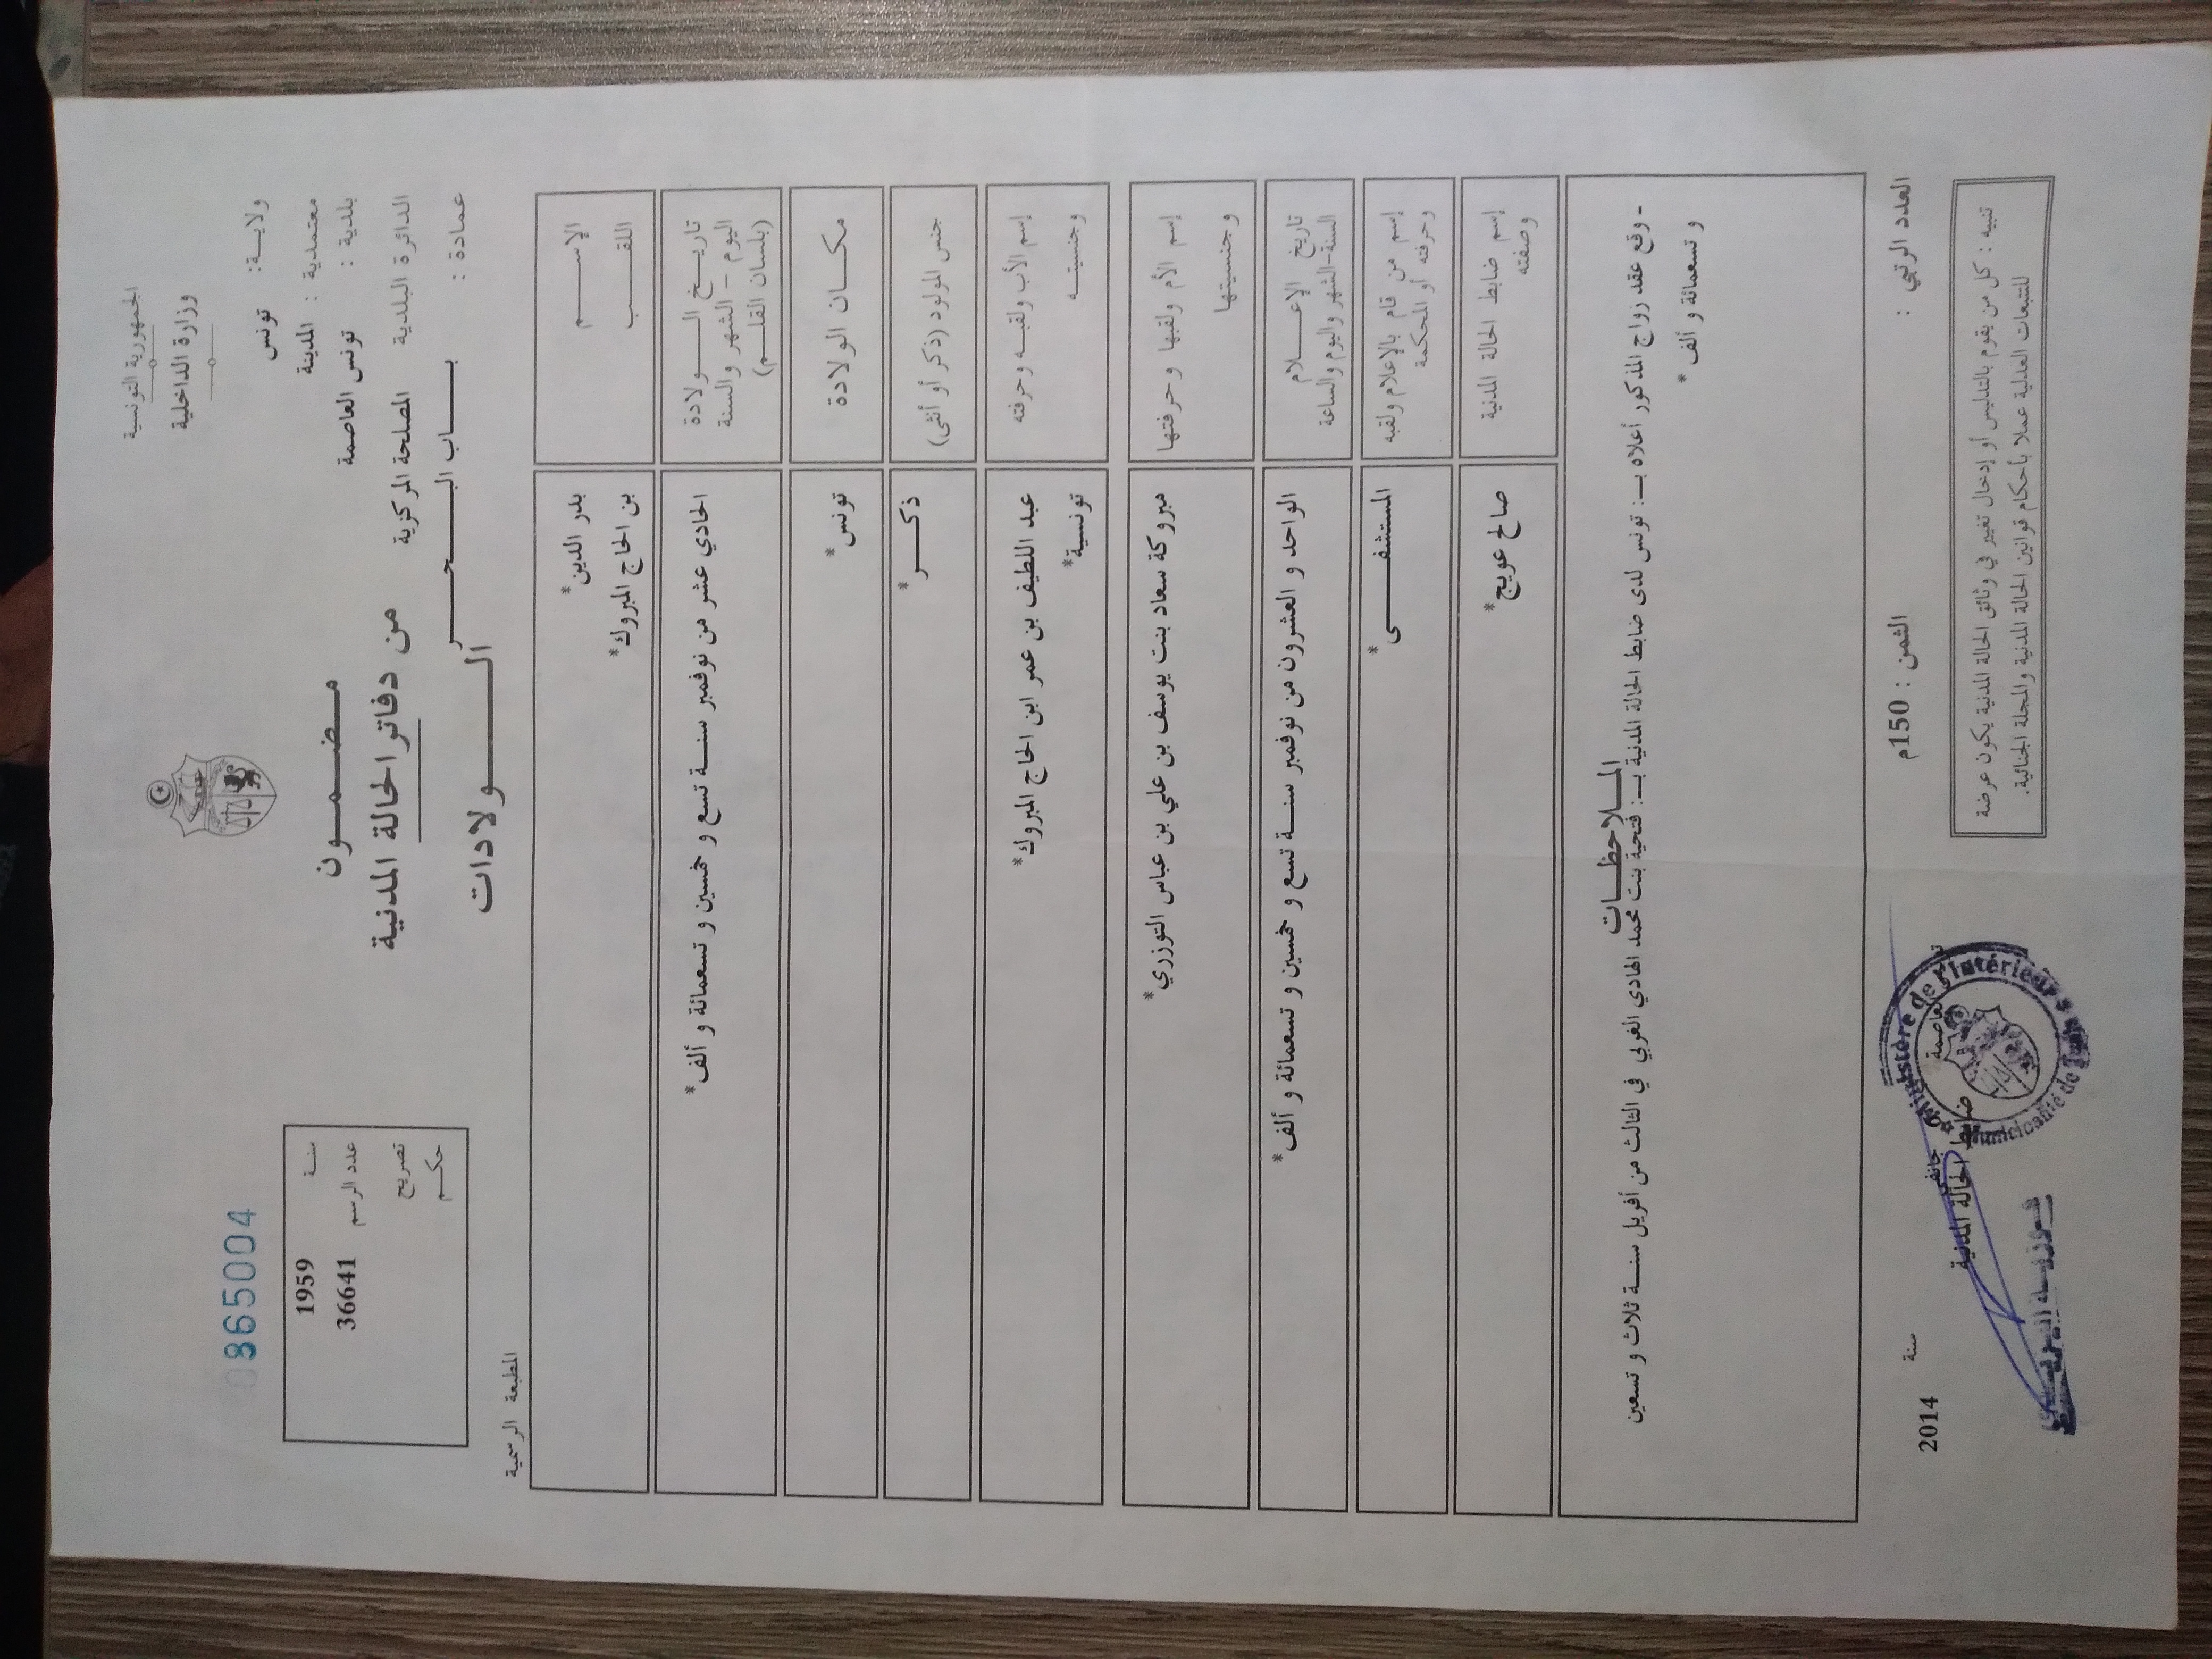 الجمهورية التونسية
وزارة الداخلية
ولايــة: تونس
معتمدية : المدينة
بلدية : تونس العاصمة
الدائرة البلدية المصلحة المركزية
عمادة : بـــاب البـــحـــر
0865004
سنة 1959
عدد الرسم 36641
تصريح
حكم
مـضـمـون
من دفاتر الحالة المدنية
الـــولادات
المطبعة الرسمية
الإســـم بدر الدين*
اللقـــب بن الحاج المبروك*
تاريــخ الـــولادة الحادي عشر من نوفمبر سنـــة تسع و خمسين و تسعمائة و ألف*
اليوم - الشهر والسنة
(بلسان القلـــم)
مكـــان الولادة تونس*
جنس المولود (ذكر أو أنثى) ذكـــر*
إسم الأب ولقبـــه وحرفته عبد اللطيف بن عمر ابن الحاج المبروك*
وجنسيتـــه تونسية*
إسم الأم ولقبها وحرفتها مبروكة سعاد بنت يوسف بن علي بن عباس التوزري*
وجنسيتـــها
تاريخ الإعـــلام الواحد و العشرون من نوفمبر سنـــة تسع و خمسين و تسعمائة و ألف*
السنة-الشهر واليوم والساعة
إسم من قام بالإعلام ولقبه المستشفـــى*
وحرفته أو المحكمة
إسم ضابط الحالة المدنية صالح عويج*
وصفته
المـــلاحظـــات
- وقع عقد زواج المذكور أعلاه بـ: تونس لدى ضابط الحالة المدنية بـ: فتحية بنت محمد الهادي الغربي في الثالث من أفريل سنـــة ثلاث و تسعين
و تسعمائة و ألف *
العدد الرتبي :
الثمن : 150م
جانفي سنة 2014
ضابط الحالة المدنية
Ministère de l'Intérieur
Municipalité de Tunis
تنبيه : كل من يقوم بالتدليس أو إدخال تغيير في وثائق الحالة المدنية يكون عرضة
للتتبعات العدلية عملا بأحكام قوانين الحالة المدنية والمجلة الجنائية.